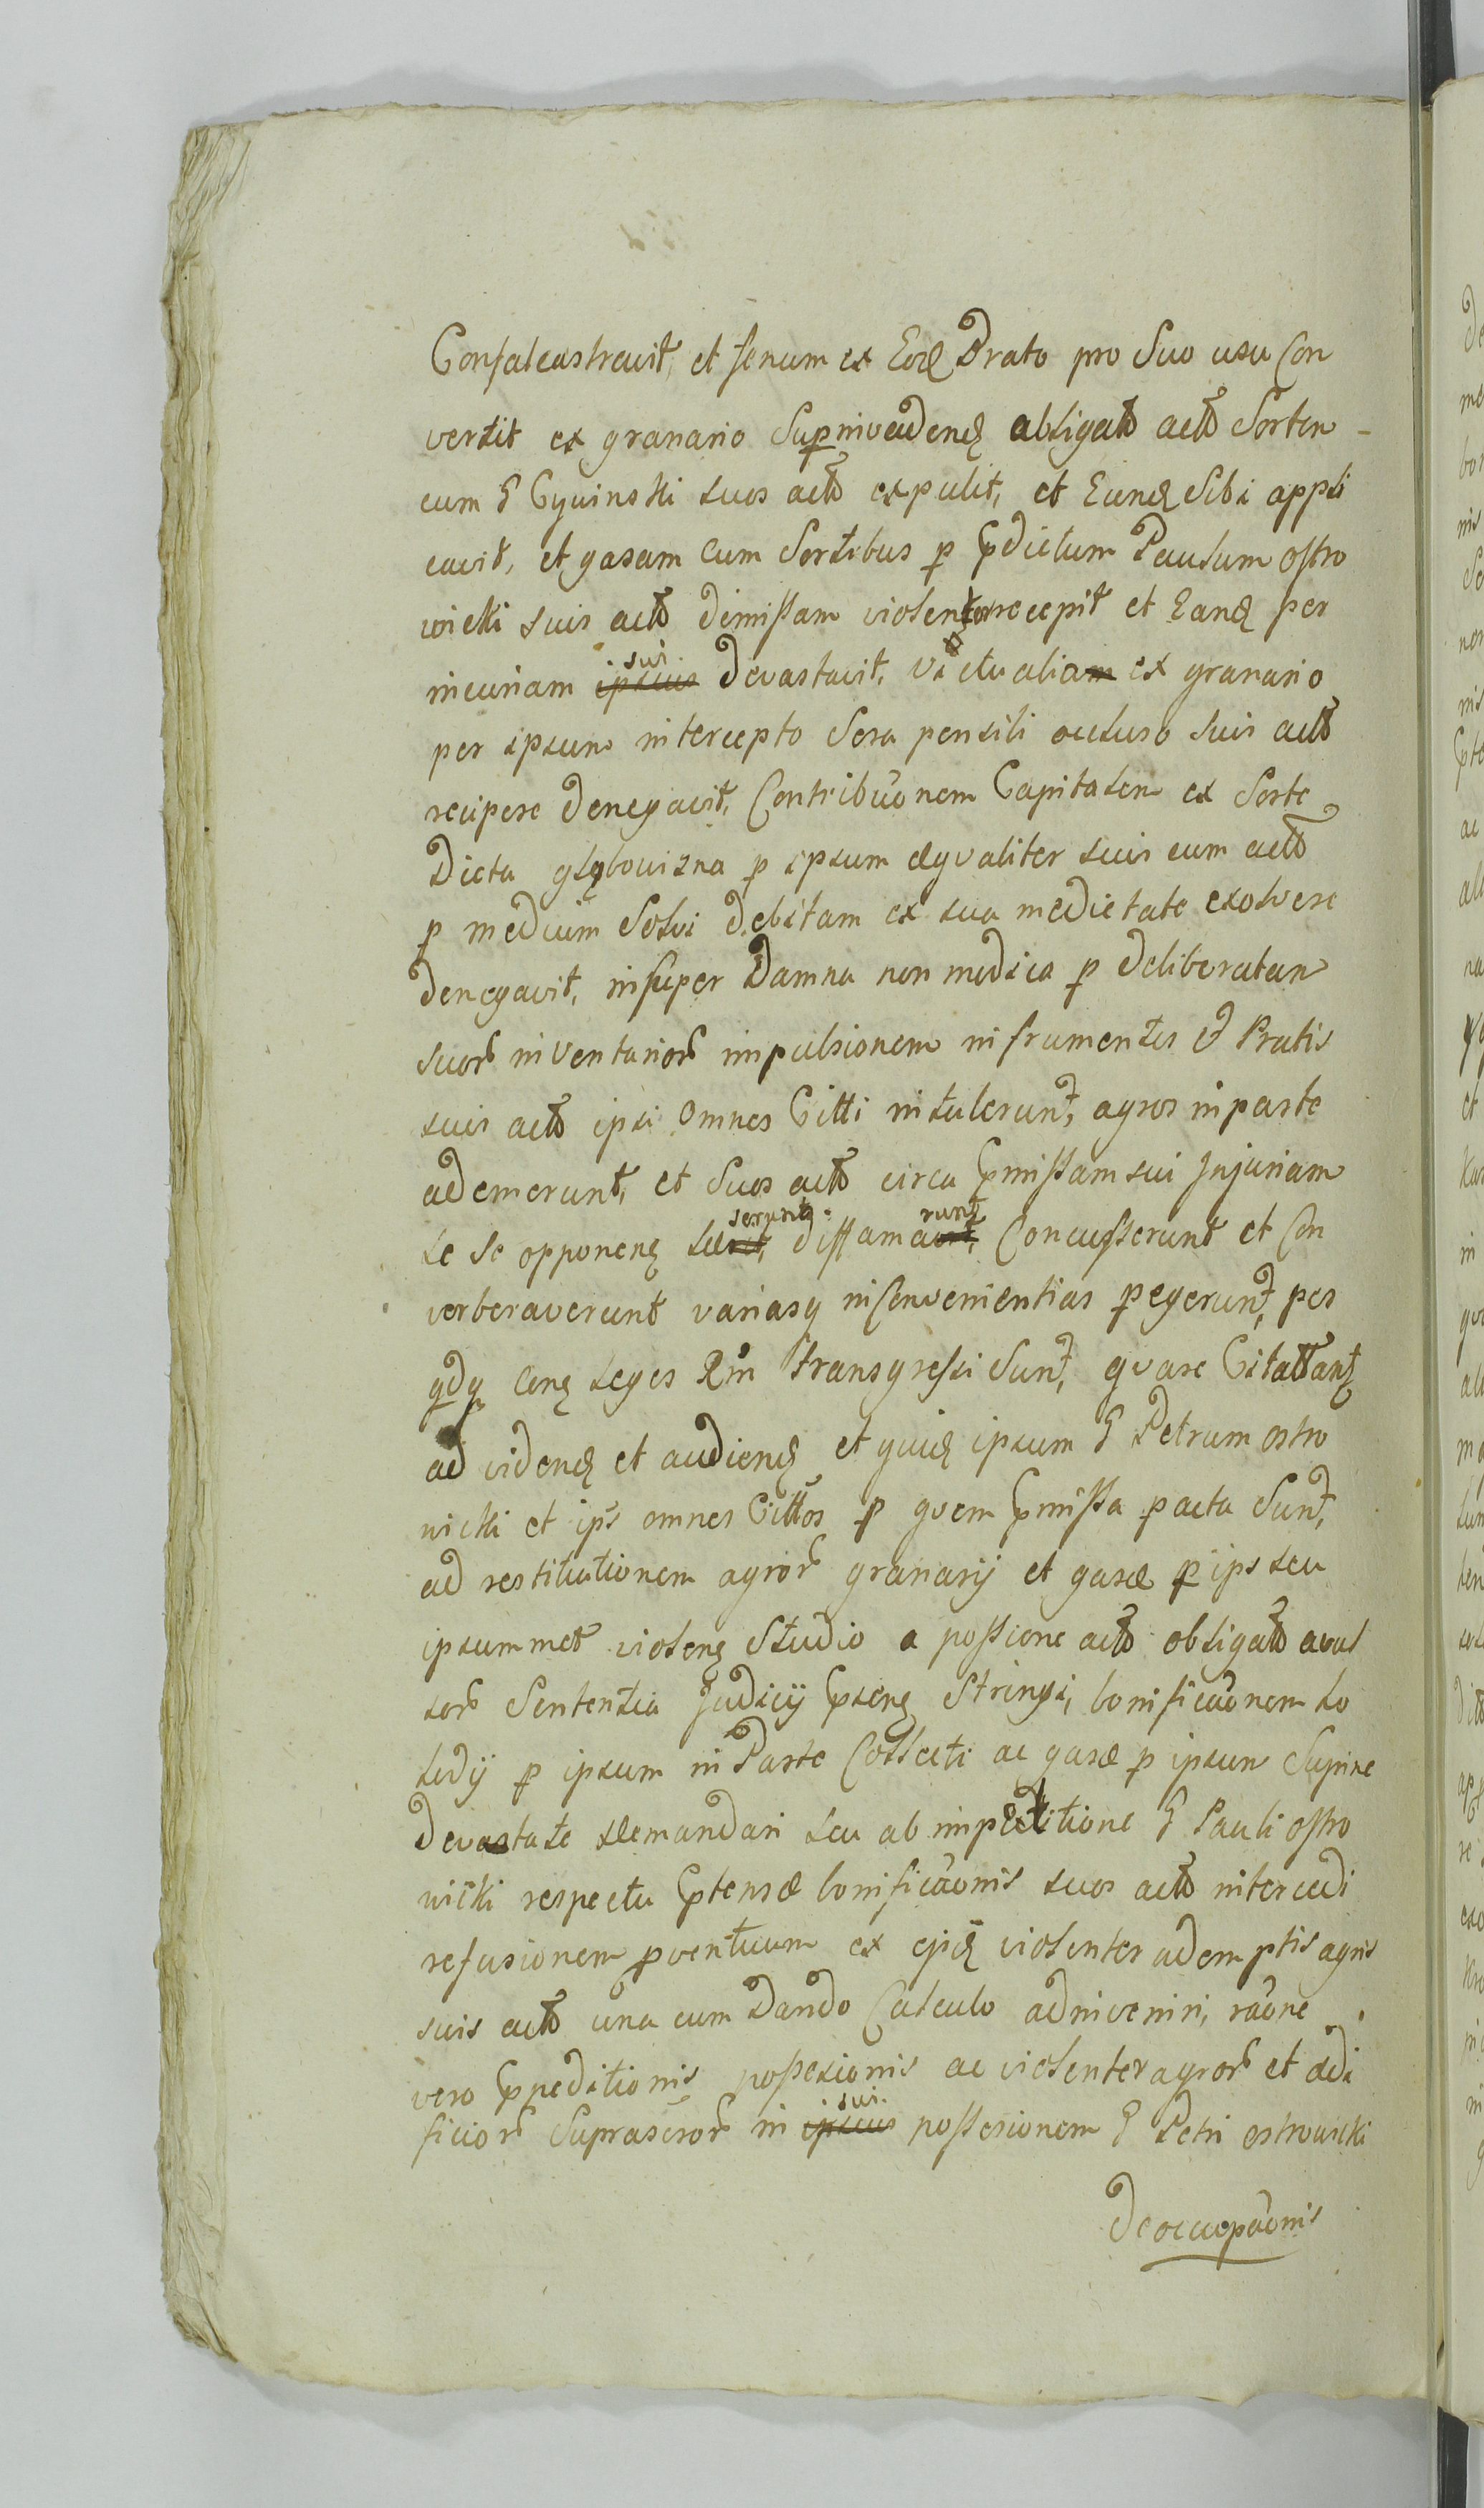 Confalcastravit, et fenum ex Eod Prato pro Suo usu Con
vertit ex granario Superinvadend obligato acto Sorten
cum G Cywinski suos acto expulit, et Eund Sibi appli
cavit, et gazam cum Sortibus p Prdictum Paulum ostro
wicki suis acto dimissam violenter recepit et Eand per
incuriam ipsius sui devastavit, victualiam ex granario
per ipsum intercepto Sera pensili occluso suis acto
recipere denegavit, Contribuonem Capitalem ex Sorte
Dicta głębowizna p ipsum æqvaliter suis cum acto
p medium Solvi debitam ex sua medietate exolvere
denegavit, insuper Damna non modica p deliberatam
suor inventarior impulsionem in frumentis et Pratis
suis acto ipsi omnes Citti intulerunt, agros in parte
ademerunt, et Suos acto circa Prmissam sui Injuriam
se se opponen læsit, serunt diffamavit, runt Concusserunt et Con
verberaverunt variasq inconvenientias pegerunt, per
qdq con leges Rm transgressi Sunt, qvare Citattant
ad vidend et audiend et quid ipsum G Petrum ostro
wicki et ips omnes Cittos p qvem Prmissa pacta Sunt,
ad restitutionem agror granarij et gazæ p ips seu
ipsummet violen Studio a possione acto obligato avul
sor Sententia Judicij Prsen Stringi, bonificaonem so
ledij p ipsum in Parte Collecti ac gazæ p ipsum Supine
devastate demandari seu ab impeditione G Pauli ostro
wicki respectu Prtensæ bonificaonis suos acto intercedi
refusionem pventuum ex ejusd violenter ademptis agris
suis acto una cum Dando Calculo adinveniri, raone
vero Prpeditionis possesionis ac violenter agror et ædi
ficior Suprascror in ipsius sui possesionem G Petri ostrowicki
deoccupaonis